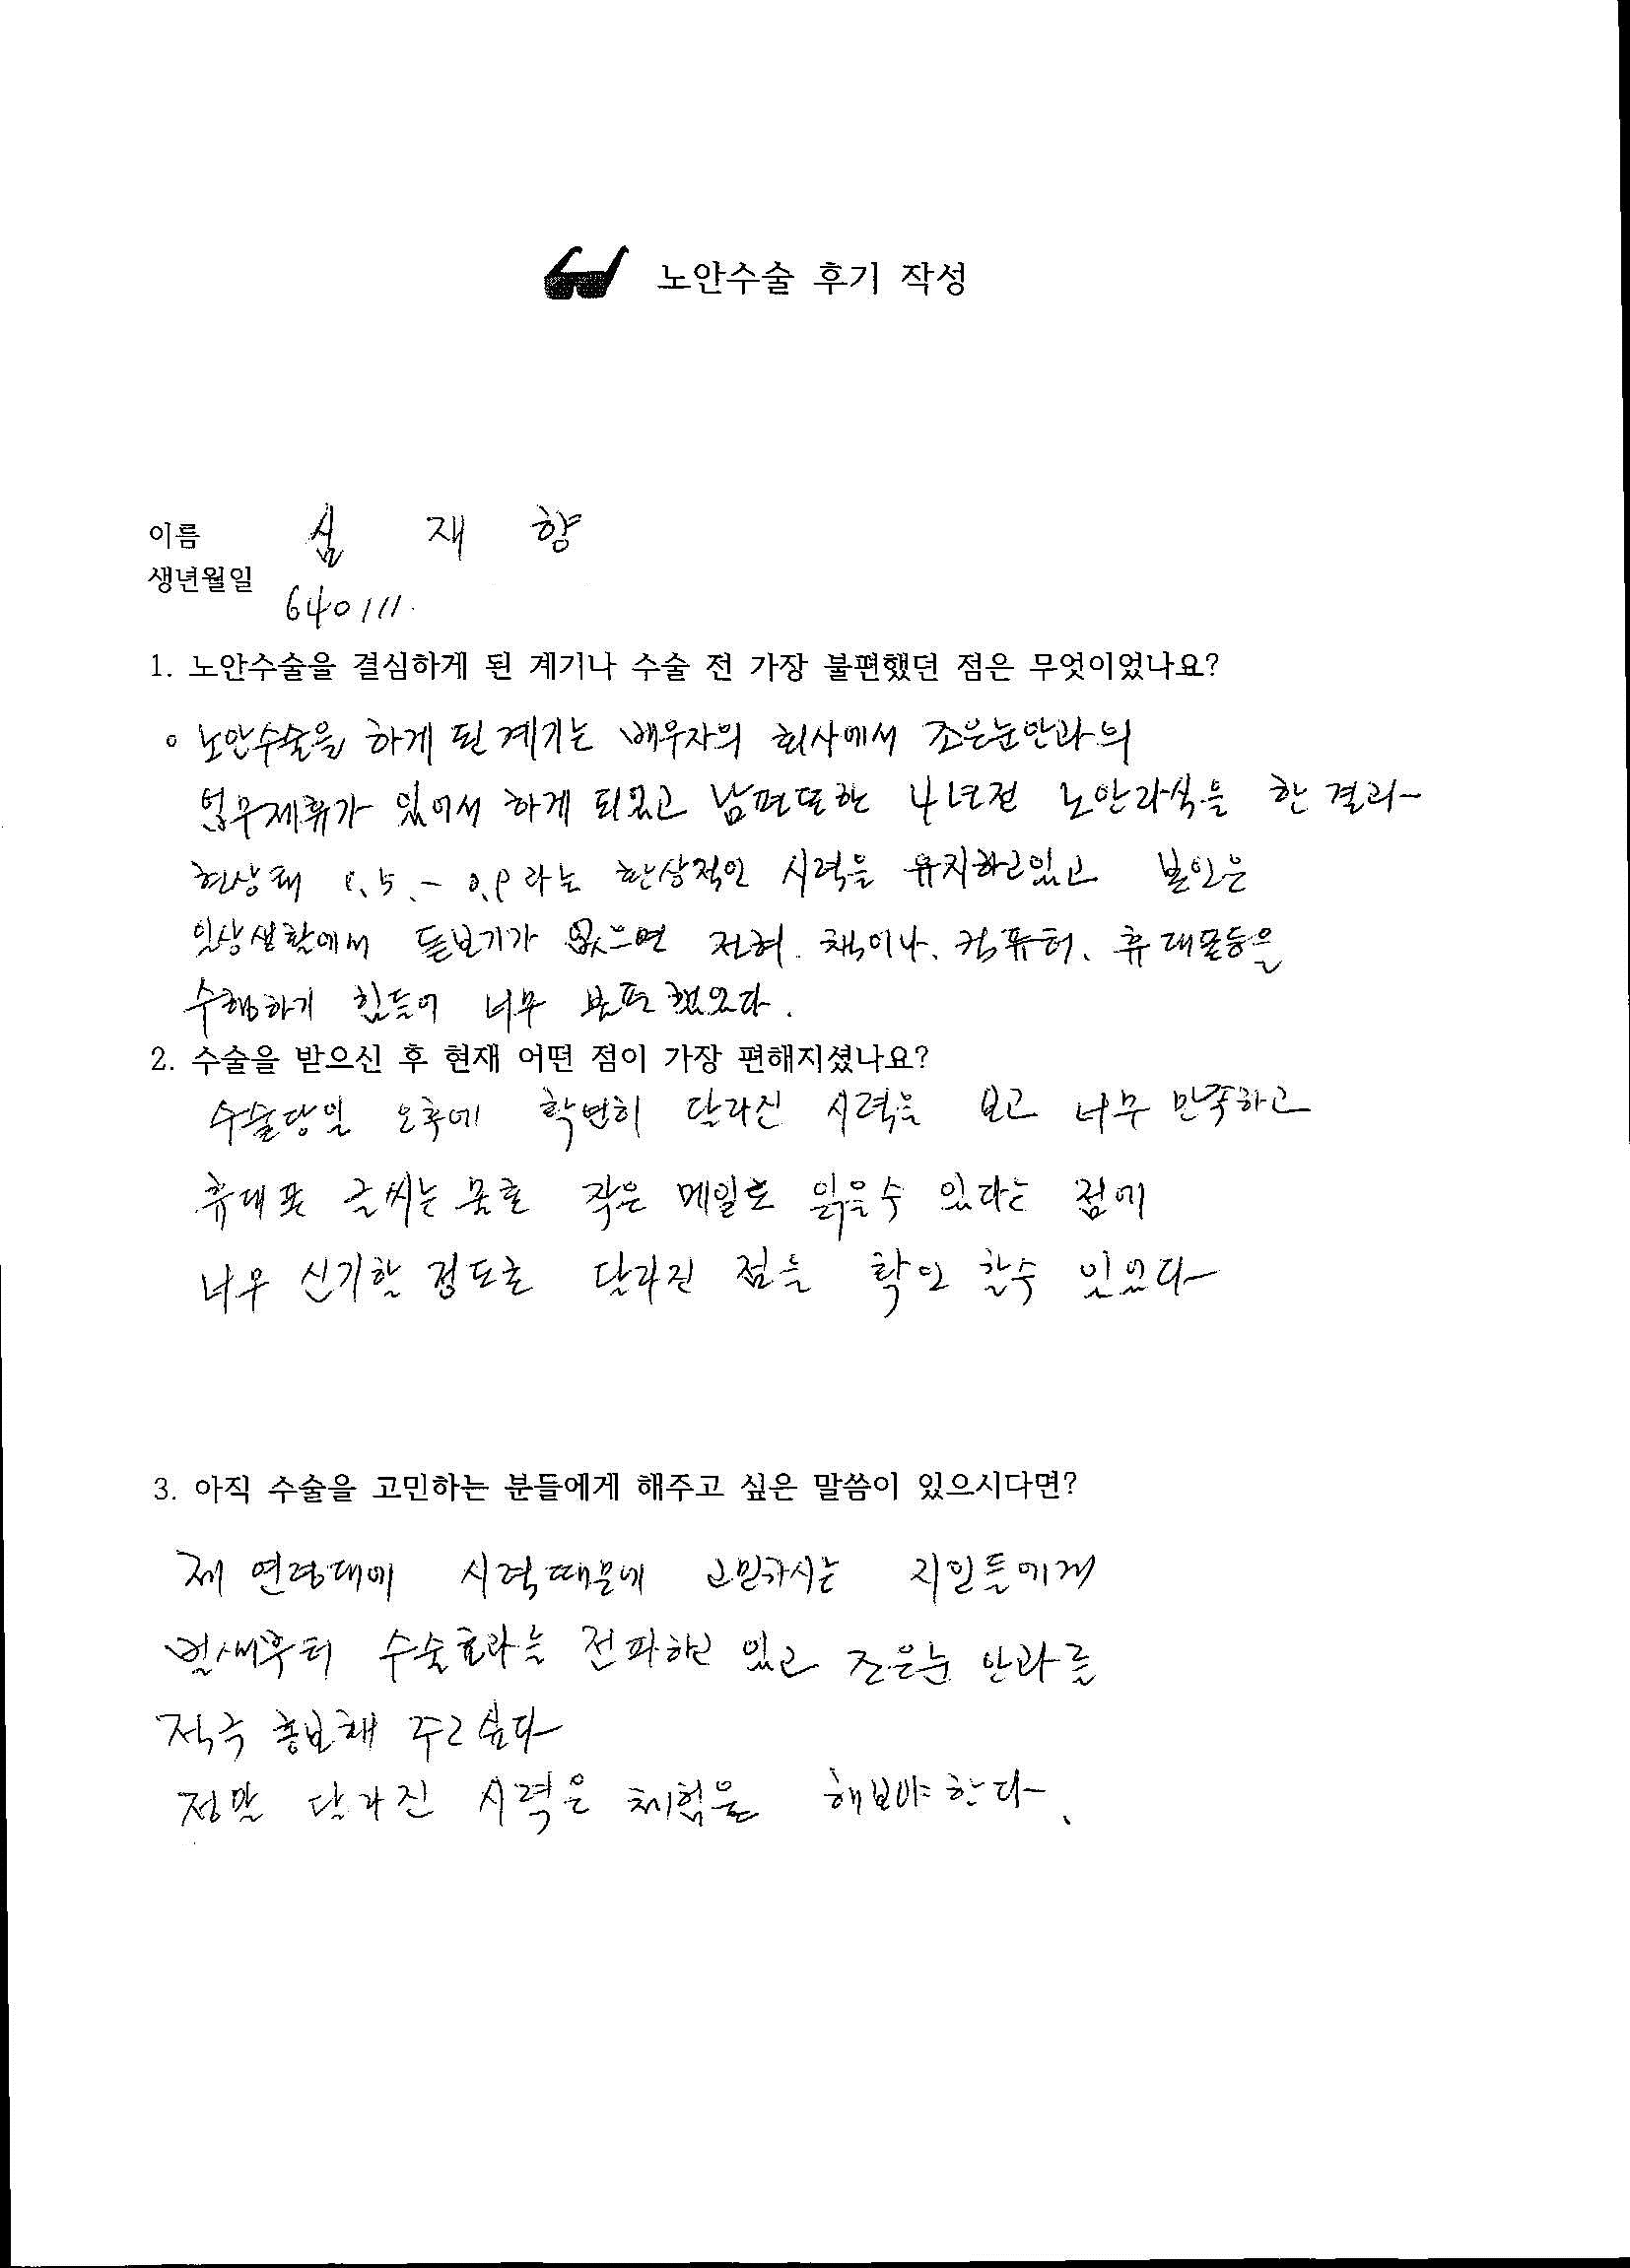 노안수술 후기 작성
이름 심 재 향
생년월일
640111.
1. 노안수술을 결심하게 된 계기나 수술 전 가장 불편했던 점은 무엇이었나요?
노안수술을 하게 된 계기는 배우자의 회사에서 조은눈안과의
업무제휴가 있어서 하게 되었고 남편또한 4년전 노안라식을 한 결과
현상태 1.5 ~ 0.9라는 환상적인 시력을 유지하고있고 본인은
일상생활에서 돋보기가 없으면 전혀. 책이나, 컴퓨터, 휴대폰등을
수행하기 힘들어 너무 불편했었다.
2. 수술을 받으신 후 현재 어떤 점이 가장 편해지셨나요?
수술당일 오후에 확연히 달라진 시력을 보고 너무 만족하고
휴대폰 글씨는 물론 작은 메일도 읽을수 있다는 점에
너무 신기할 정도로 달라진 점을 확인 할수 있었다
3. 아직 수술을 고민하는 분들에게 해주고 싶은 말씀이 있으시다면?
제 연령대에 시력때문에 고민하시는 지인들에게
벌써부터 수술효과를 전파하고 있고 조은눈 안과를
적극 홍보해 주고싶다
정말 달라진 시력은 체험을 해보야한다.